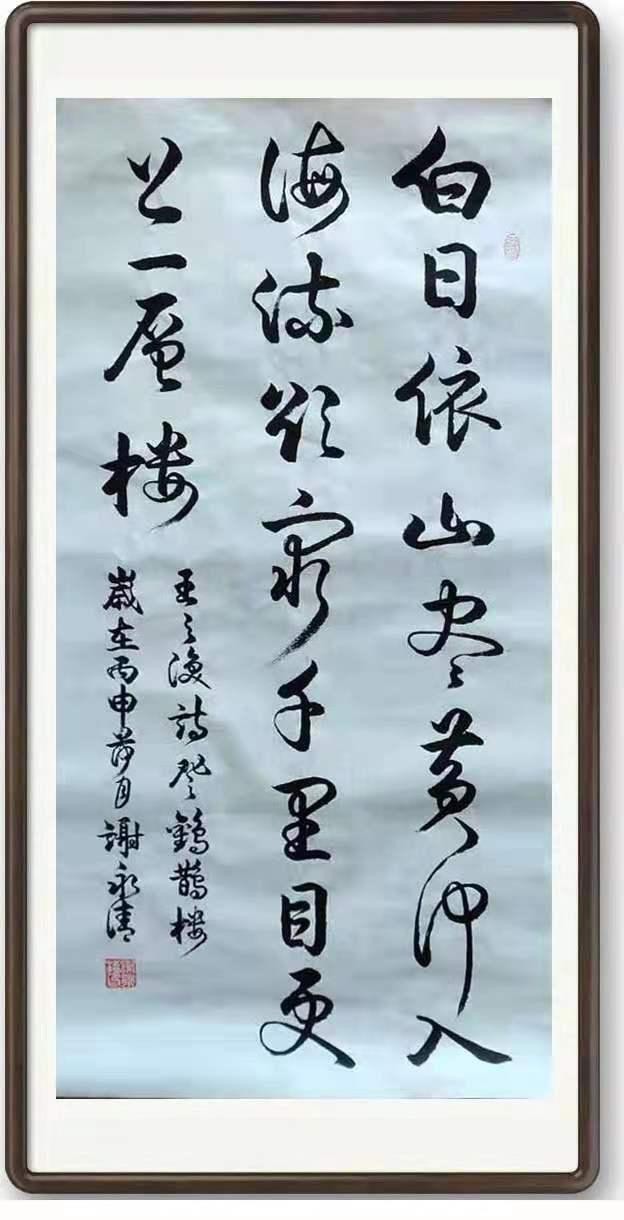 白日依山尽黄河入
海流欲穷千里目更
上一層楼
王之涣詩登鸛鵲楼
歲在丙申月謝永清